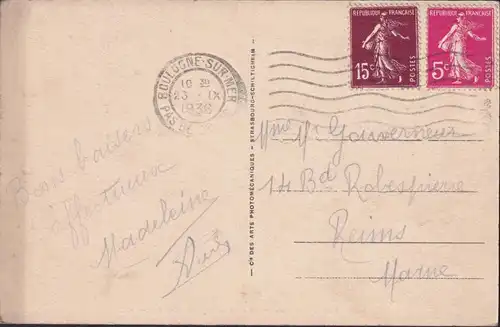 BOULOGNE-SUR-MER
23 - IX
PAS DE
REPUBLIQUE FRANÇAISE
15c
POSTES
REPUBLIQUE FRANÇAISE
5c
POSTES
Bons baisers
affectueux
Madeleine
Cie DES ARTS PHOTOMÉCANIQUES - STRASBOURG-SCHILTIGHEIM -
Mme Gouverneur
14 Bd Robespierre
Reims
Marne